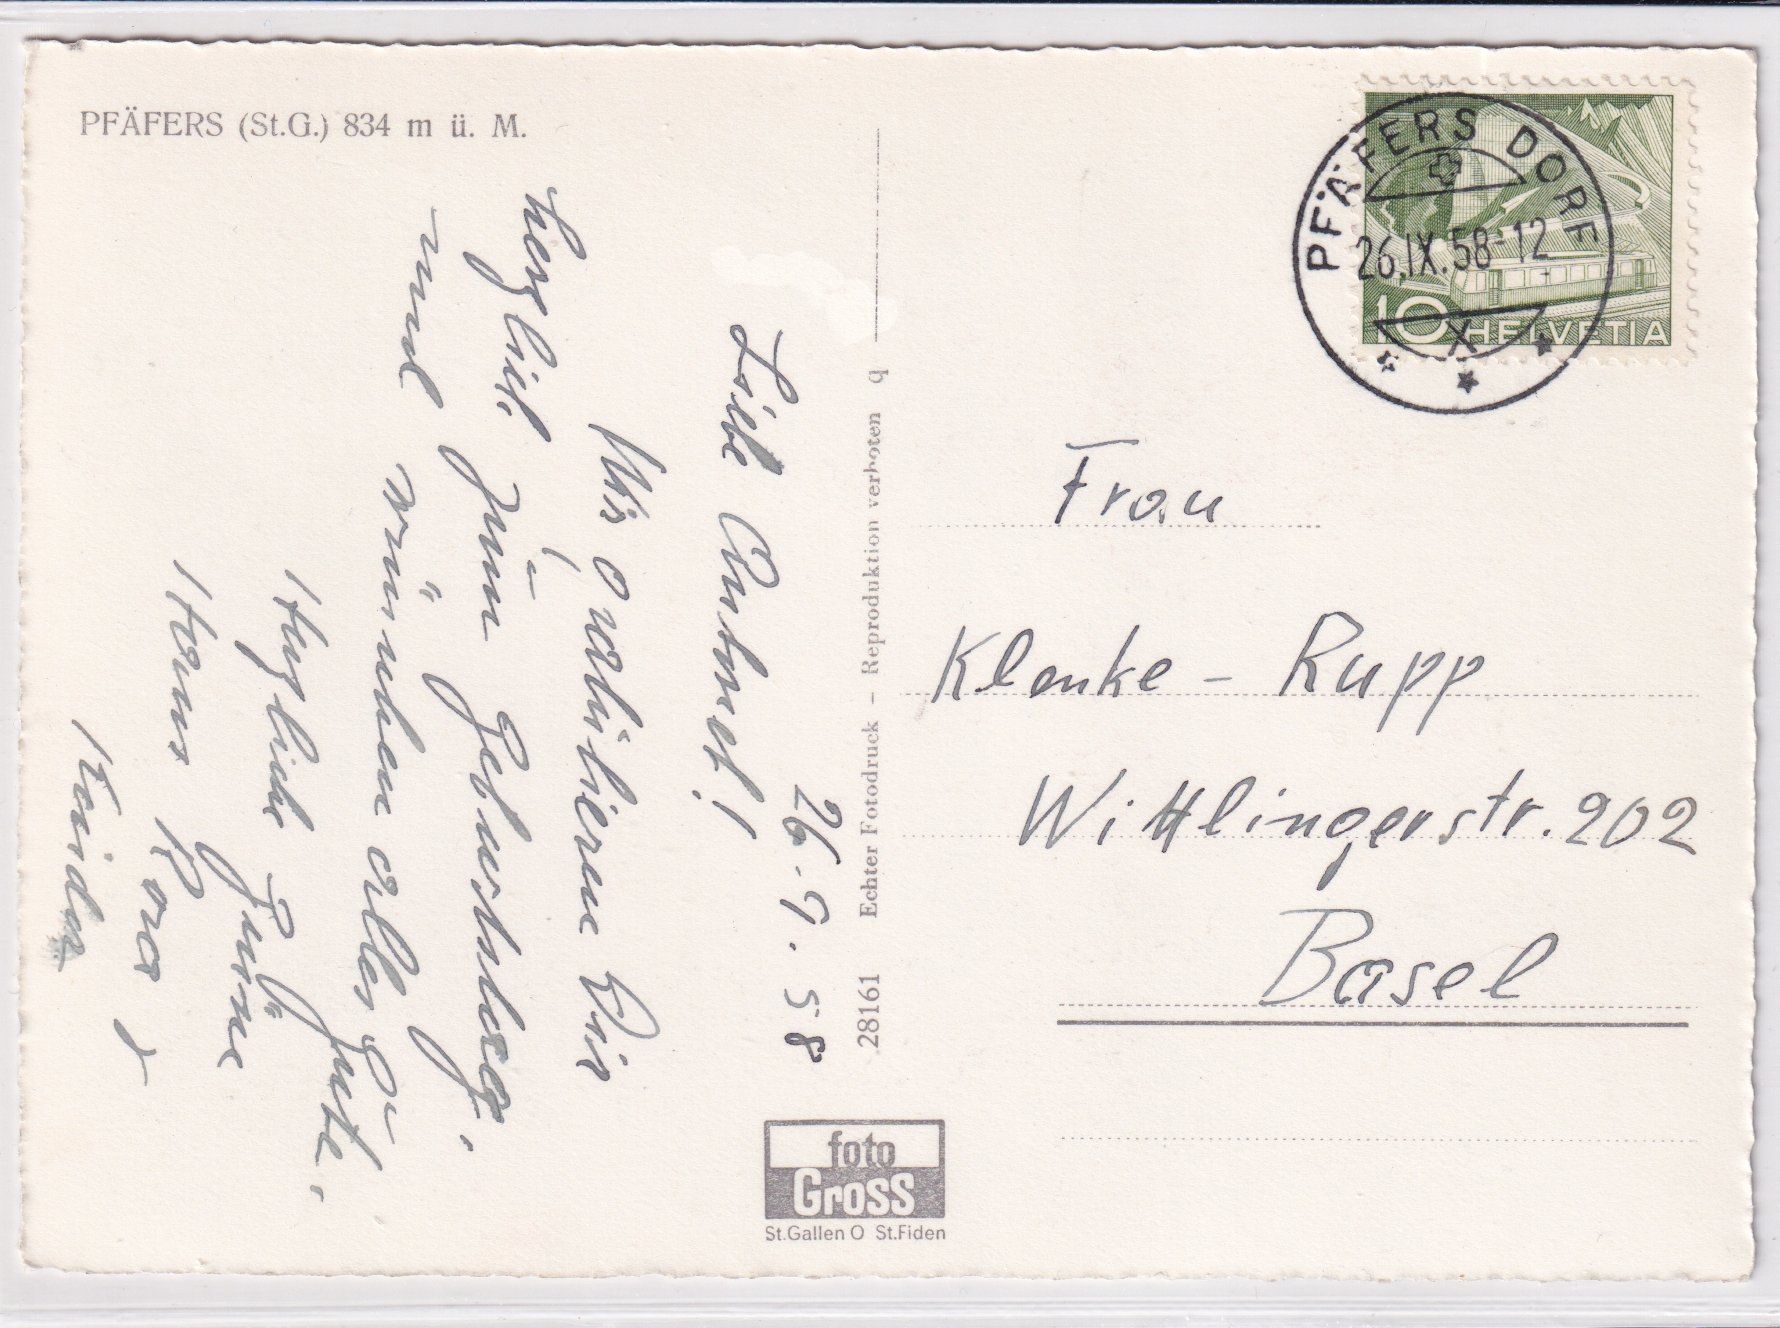 PFÄFERS (St.G.) 834 m ü. M.
26. 9. 58
Liebe
Wir gratulieren Dir
herzlich zum Geburtstag,
und wünschen alles Gute.
Herzliche Grüsse
Hans Rosa
Kinder
28161 Echter Fotodruck – Reproduktion verboten q
foto
Gross
St.Gallen O St.Fiden
PFÄFERS DORF
26.IX.58-12
X
10 HELVETIA
Frau
Klenke - Rupp
Wittlingerstr. 202
Basel